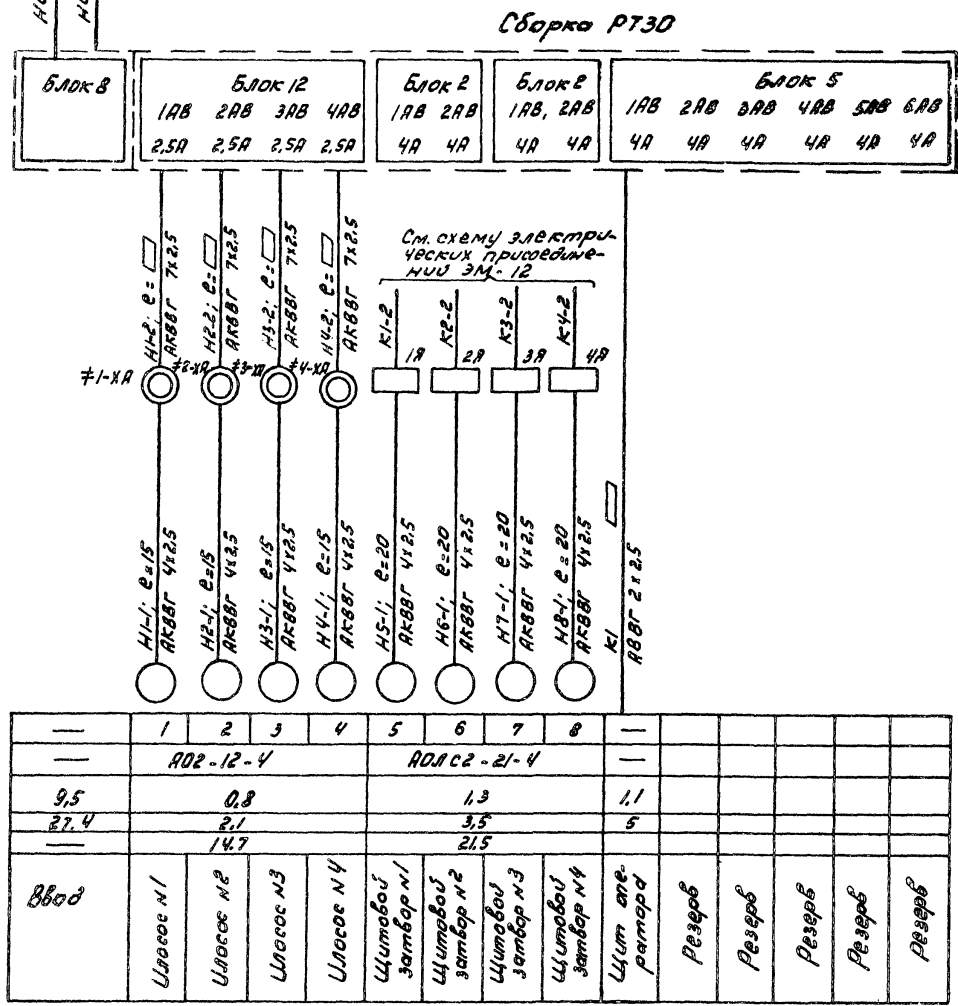 Сборка РТ30
Блок 8
Блок 12
1АВ 2АВ 3АВ 4АВ
2,5А 2,5А 2,5А 2,5А
Блок 2
1АВ 2АВ
4А 4А
Блок 2
1АВ, 2АВ
4А 4А
Блок 5
1АВ 2АВ 3АВ 4АВ 5АВ 6АВ
4А 4А 4А 4А 4А 4А
См. схему электри-
ческих присоедине-
ний ЭМ-12
Н1-2; ℓ=
АКВВГ 7х2,5
Н2-2; ℓ=
АКВВГ 7х2,5
Н3-2; ℓ=
АКВВГ 7х2,5
Н4-2; ℓ=
АКВВГ 7х2,5
К1-2
К2-2
К3-2
К4-2
1А
2А
3А
4А
≠1-ХА
≠2-ХА
≠3-ХА
≠4-ХА
Н1-1; ℓ=15
АКВВГ 4х2,5
Н2-1; ℓ=15
АКВВГ 4х2,5
Н3-1; ℓ=15
АКВВГ 4х2,5
Н4-1; ℓ=15
АКВВГ 4х2,5
Н5-1; ℓ=20
АКВВГ 4х2,5
Н6-1; ℓ=20
АКВВГ 4х2,5
Н7-1; ℓ=20
АКВВГ 4х2,5
Н8-1; ℓ=20
АКВВГ 4х2,5
К1
АВВГ 2х2,5
— 1 2 3 4 5 6 7 8 —
— АО2-12-4 АОЛС2-21-4 —
9,5 0,8 1,3 1,1
27.4 2.1 3,5 5
— 14.7 21.5
Ввод
Илосос N1
Илосос N2
Илосос N3
Илосос N4
Щитовой
затвор N1
Щитовой
затвор N2
Щитовой
затвор N3
Щитовой
затвор N4
Щит опе-
ратора
Резерв
Резерв
Резерв
Резерв
Резерв